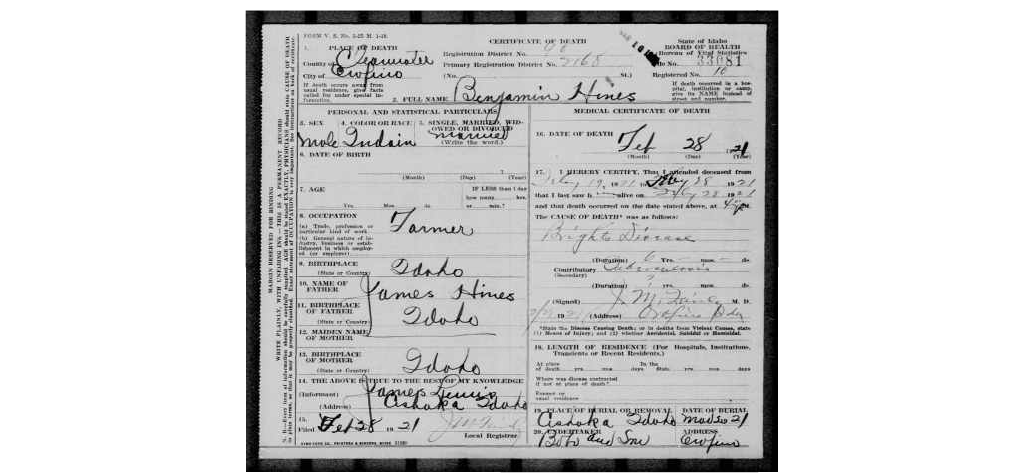 FORM V. S. No. 5-25 M. 1-19.
CERTIFICATE OF DEATH
State of Idaho
1. PLACE OF DEATH
Registration District No. 90
BOARD OF HEALTH
Bureau of Vital Statistics
County of Clearwater
Primary Registration District No. 2168
File No. 33081
City of Orofino
(No. St.)
Registered No. 10
If death occurs away from usual residence, give facts called for under special information.
If death occurred in a hospital, institution or camp, give its NAME instead of street and number.
2. FULL NAME Benjamin Hines
PERSONAL AND STATISTICAL PARTICULARS
MEDICAL CERTIFICATE OF DEATH
3. SEX
4. COLOR OR RACE
5. SINGLE, MARRIED, WIDOWED OR DIVORCED
Male Indain Married
(Write the word.)
16. DATE OF DEATH
Feb 28 1921
(Month) (Day) (Year)
6. DATE OF BIRTH
(Month) (Day) (Year)
17. I HEREBY CERTIFY, That I attended deceased from
28 1921
that I last saw h alive on 28 1921
and that death occurred on the date stated above, at
7. AGE
IF LESS than 1 day
how many hrs.
Yrs. Mos. ds. or min.?
The CAUSE OF DEATH* was as follows:
Brights Disease
8. OCCUPATION
(a) Trade, profession or particular kind of work
Farmer
(b) General nature of industry, business or establishment in which employed (or employer)
(Duration) Yrs. mos. ds.
Contributory Tuberculosis
(Secondary)
9. BIRTHPLACE
(State or Country)
Idaho
(Duration) ? yrs. mos. ds.
10. NAME OF FATHER
James Hines
(Signed) M. D.
11. BIRTHPLACE OF FATHER
(State or Country)
Idaho
(Address) Orofino Ida
*State the Disease Causing Death; or in deaths from Violent Causes, state (1) Means of Injury; and (2) whether Accidental, Suicidal or Homicidal.
12. MAIDEN NAME OF MOTHER
18. LENGTH OF RESIDENCE (For Hospitals, Institutions, Transients or Recent Residents.)
13. BIRTHPLACE OF MOTHER
(State or Country)
Idaho
At place of death yrs. mos. days
In the State yrs. mos. days
Where was disease contracted if not at place of death?
14. THE ABOVE IS TRUE TO THE BEST OF MY KNOWLEDGE
Former or usual residence
(Informant) James
(Address) Ashaka Idaho
19. PLACE OF BURIAL OR REMOVAL
DATE OF BURIAL
Ashaka Idaho
21
15.
Filed Feb 28 1921
Local Registrar
20. UNDERTAKER
ADDRESS
and Son
Orofino
MARGIN RESERVED FOR BINDING
WRITE PLAINLY, WITH UNFADING INK—THIS IS A PERMANENT RECORD